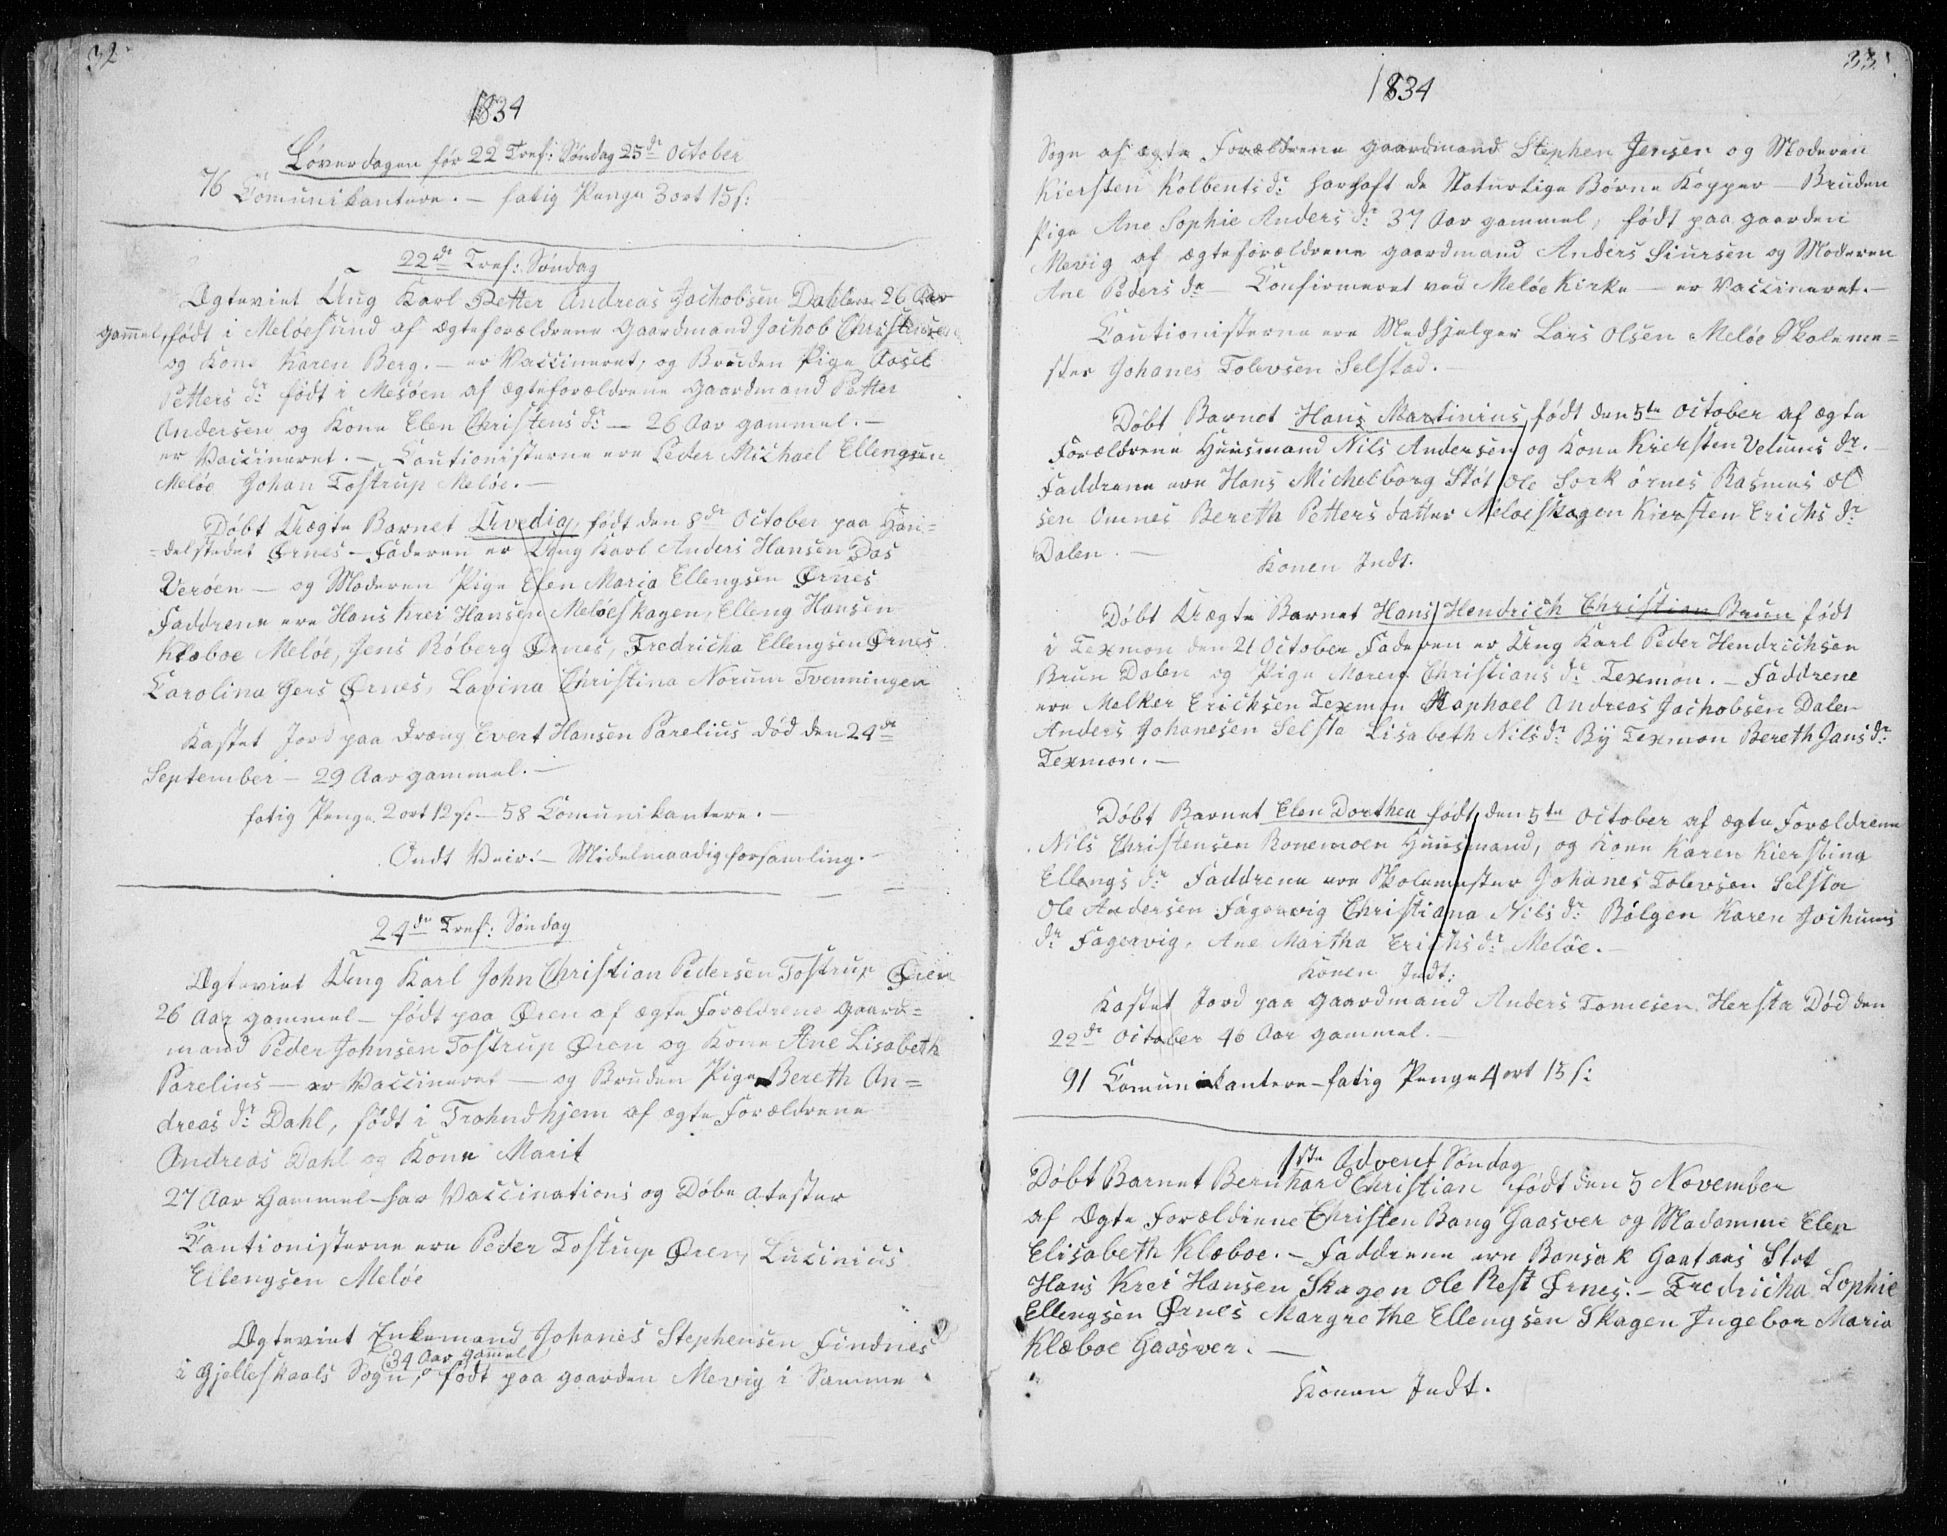 32
1834
Løverdagen før 22 Tref: Søndag 25de October
76 Comunikantere. — fatig Penge 3 ort 15 s:
22de Tref: Søndag
Ægteviet Ung Karl Petter Andreas Jachobsen Dahlen 26 Aar
gamel, født i Meløesund af ægteforældrene Gaardmand Jachob Christensen
og Kone Karen Berg. — er Vaccineret, og Bruden Pige Aasel
Petters dr født i Mesøen af ægteforældrene Gaardmand Petter
Andersen og Kone Elen Christens dr — 26 Aar gammel. —
er Vaccineret. — Cautionisterne ere Peder Michael Ellengsen
Meløe Johan Tostrup Meløe. —
Døbt Uægte Barnet Arvedia, født den 8de October paa Han=
=delstedet Ørnes — Faderen er Ung Karl Anders Hansen Das
Verøen — og Moderen Pige Elen Maria Ellengsen Ørnes
Faddrene ere Hans Krei Hansen Meløeskagen, Elleng Hansen
Kloboe Meløe, Jens Røberg Ørnes, Fredricha Ellengsen Ørnes
Carolina Gers Ørnes, Lavina Christina Norum Tvenningen
Kastet Jord paa Dræng Evert Hansen Parelius død den 24de
September — 29 Aar gammel. —
fatig Penge 2 ort 12 s: — 58 Comunikantere. —
Ondt Veir. — Midelmaadig forsamling. —
24de Tref: Søndag
Ægteviet Ung Karl John Christian Pedersen Tostrup Øren
26 Aar gammel — født paa Øren af ægte Forældrene Gaard=
mand Peder Johnsen Tostrup Øren og Kone Ane Lisabeth
Parelius — er Vaccineret — og Bruden Pige Bereth An=
dreas dr Dahl, født i Trohndhjem af ægte Forældrene
Andreas Dahl og Kone Marit
27 Aar Gammel — har Vaccinations og Døbe atester
Cautionisterne ere Peder Tostrup Øren, Lucinius
Ellengsen Meløe
Ægteviet Enkemand Johanes Stephensen Findnes
34 Aar gammel
i Gjelleskaals Sogn, født paa gaarden Mevig i Samme
33
1834
Sogn af ægte Forældrene Gaardmand Stephen Jensen og Moderen
Kiersten Kolbents dr har haft de Naturlige Børne Kopper — Bruden
Pige Ane Sophie Anders dr 37 Aar gammel, født paa gaarden
Mevig af ægteforældrene gaardmand Anders Siursen og Moderen
Ane Peders dr — Confirmeret ved Meløe Kirke — er Vaccineret. —
Cautionisterne ere Medhjelper Lars Olsen Meløe Skoleme=
ster Johanes Tolevsen Selstad. —
Døbt Barnet Hans Martinius født den 5te October af ægte
Forældrene Huusmand Nils Andersen og Kone Kiersten Velums dr. —
Faddrene ere Hans Michelborg Støt Ole Sork ørnes Rasmus Ol
sen Omnes Bereth Petters datter Meløeskagen Kiersten Erichs dr
Dalen. —
Konen Indt.
Døbt Uægte Barnet Hans Hendrich Christian Brun født
i Texmon den 21 October Faderen er Ung Karl Peder Hendrichsen
Brun Dalen og Pige Maren Christians dr Texmon. — Faddrene
ere Melker Erichsen Texmon Raphael Andreas Jachobsen Dalen
Anders Johanesen Selsta Lisabeth Nils dr By Texmon Bereth Jans dr
Texmon. —
Døbt Barnet Elen Dorthea født den 5te October af ægte Forældrene
Nils Christensen Ronemoen Huusmand, og Kone Karen Kierstina
Ellengs dr Faddrene ere Skolemester Johanes Tolevsen Selsta
Ole Andersen Fagervig Christiana Nils dr Bolgen Karen Jochums
dr Fagervig, Ane Martha Erichs dr Meløe. —
Konen Indt:
Kastet Jord paa Gaardmand Anders Tomesen Hersta Død den
22de October 46 Aar gammel. —
91 Comunikantere — fatig Penge 4 ort 15 s:
1ste Advent Søndag
Døbt Barnet Bernhard Christian født den 5 November
af Ægte Forældrene Christen Bang Gaasver og Madamme Elen
Elisabeth Klæboe. — Faddrene ere Bonsak Støt
Hans Krei Hansen Skagen Ole Rest Ørnes. — Fredricha Sophie
Ellengsen Ørnes Margrethe Ellengsen Skagen Ingebor Maria
Klæboe Gaasver. —
Konen Indt.